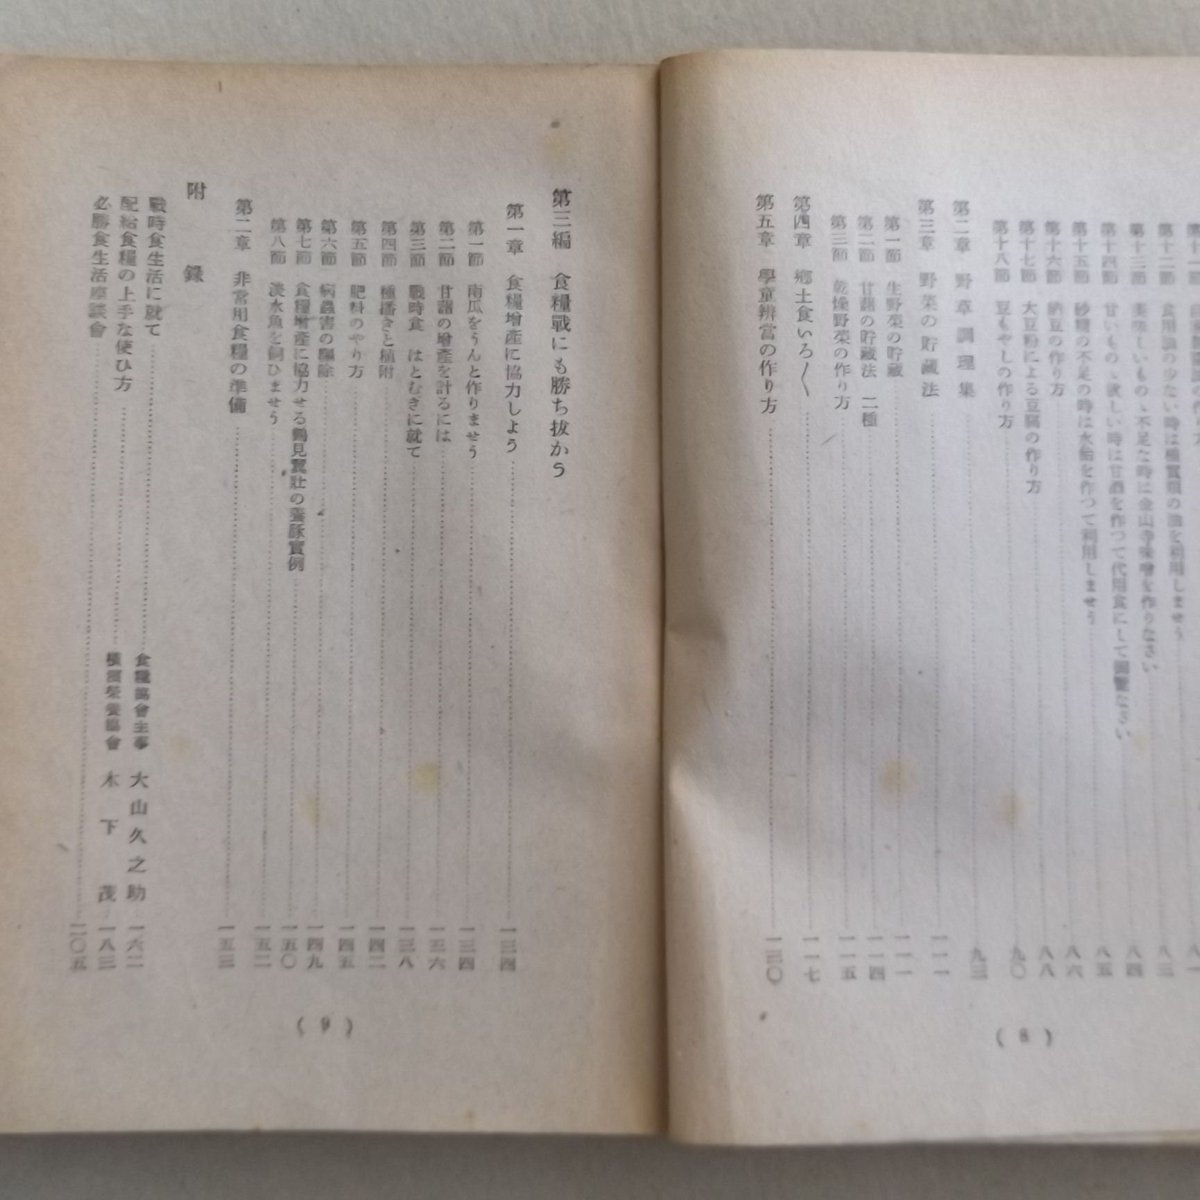 第十二節 食用油の少ない時は種實類の油を利用しませう 八三
第十三節 美味しいもの、不足な時は金山寺味噌を作りなさい 八四
第十四節 甘いもの、欲しい時は甘酒を作つて代用食にして御覽なさい 八五
第十五節 砂糖の不足の時は水飴を作つて利用しませう 八六
第十六節 納豆の作り方 八八
第十七節 大豆粉による豆腐の作り方 九〇
第十八節 豆もやしの作り方
第二章 野草調理集 九三
第三章 野菜の貯藏法 一一一
第一節 生野菜の貯藏 一一一
第二節 甘藷の貯藏法 二種 一一四
第三節 乾燥野菜の作り方 一一五
第四章 郷土食いろ〱 一一七
第五章 學童辨當の作り方 一三〇
(8)
第三編 食糧戰にも勝ち拔かう
第一章 食糧增產に協力しよう 一三四
第一節 南瓜をうんと作りませう 一三四
第二節 甘藷の增產を計るには 一三六
第三節 戰時食 はとむぎに就て 一三八
第四節 種播きと植附 一四二
第五節 肥料のやり方 一四五
第六節 病蟲害の驅除 一四九
第七節 食糧增產に協力せる鶴見翼壯の養豚實例 一五〇
第八節 淡水魚を飼ひませう 一五二
第二章 非常用食糧の準備 一五三
附錄
戰時食生活に就て 食糧協會主事 大山久之助 一六二
配給食糧の上手な使ひ方 橫濱榮養協會 木下茂 一八三
必勝食生活座談會 二〇五
(9)